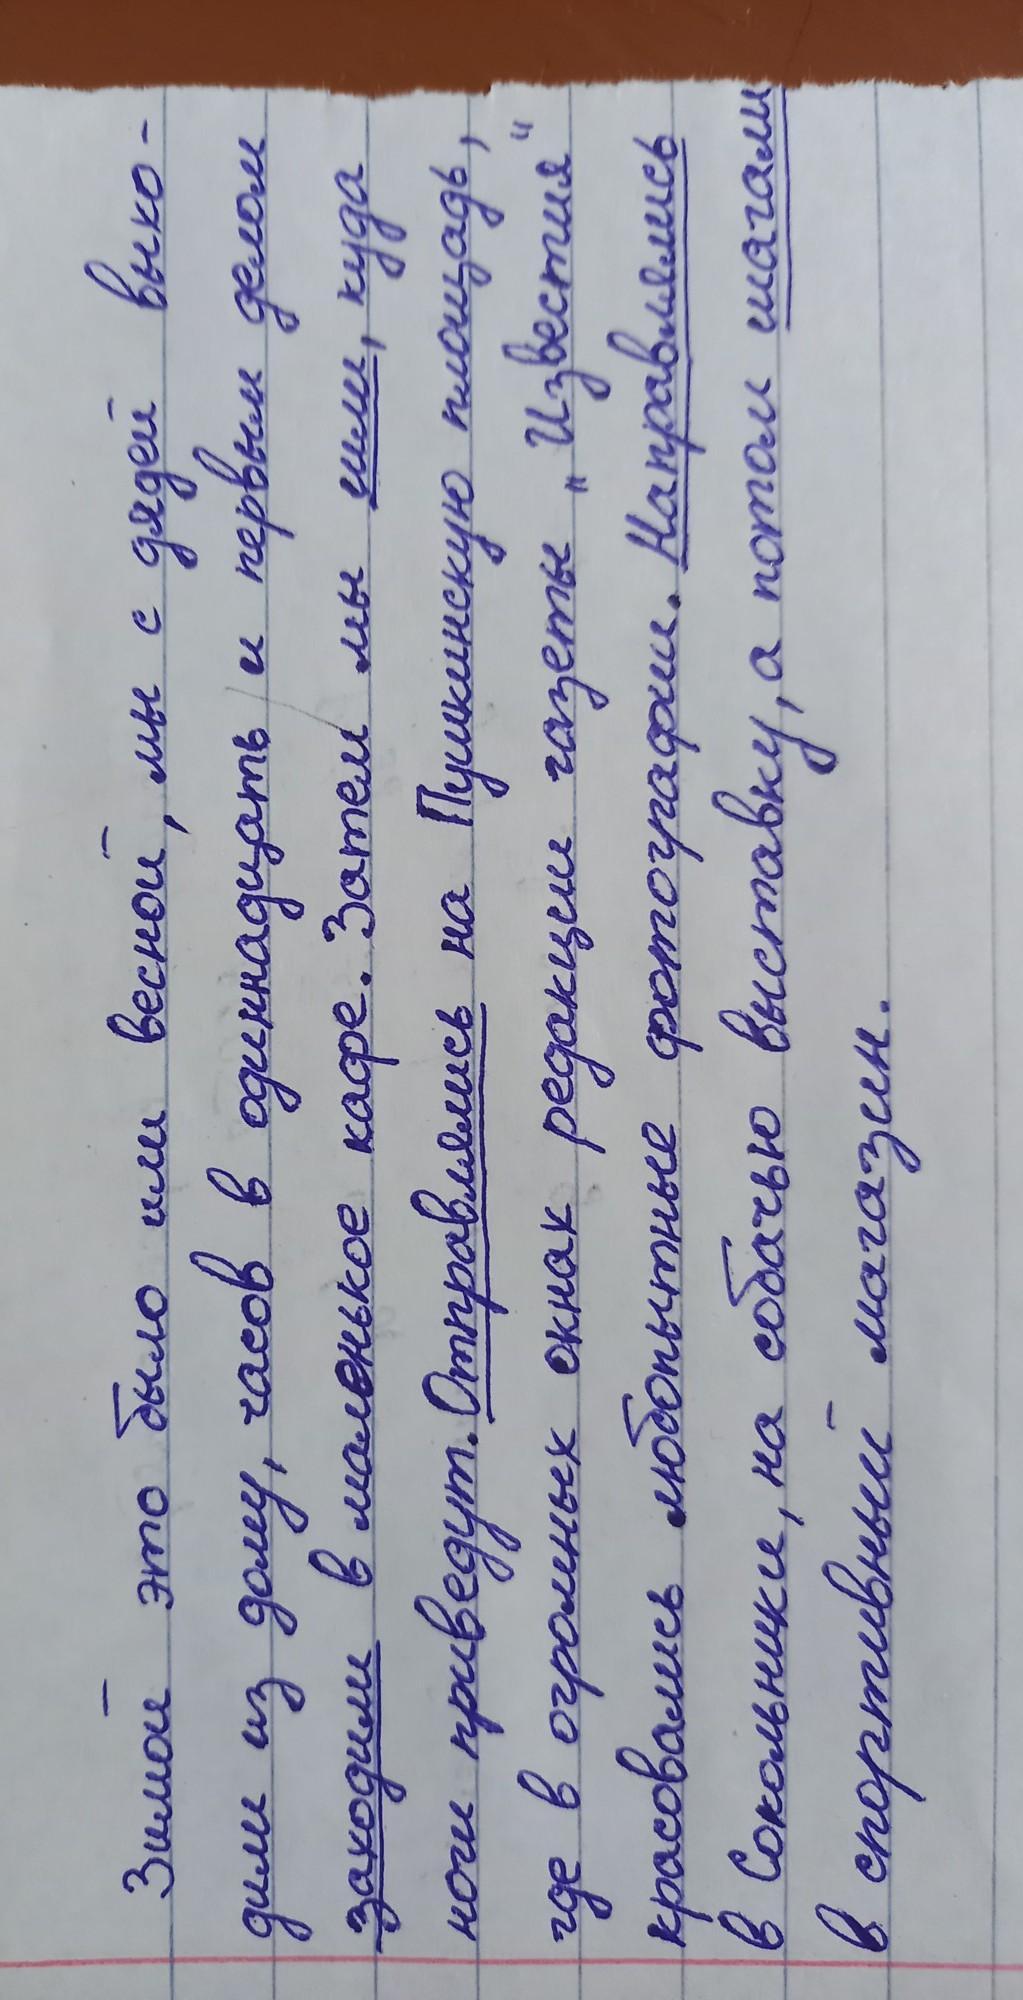 Зимой это было или весной, мы с дядей выхо-
дим из дому, часов в одиннадцать и первым делом
заходим в маленькое кафе. Затем мы шли, куда
ноги приведут. Отправлялись на Пушкинскую площадь,
где в огромных окнах редакции газеты „Известия“
красовались любопытные фотографии. Направлялись
в Сокольники, на собачью выставку, а потом шагали
в спортивный магазин.